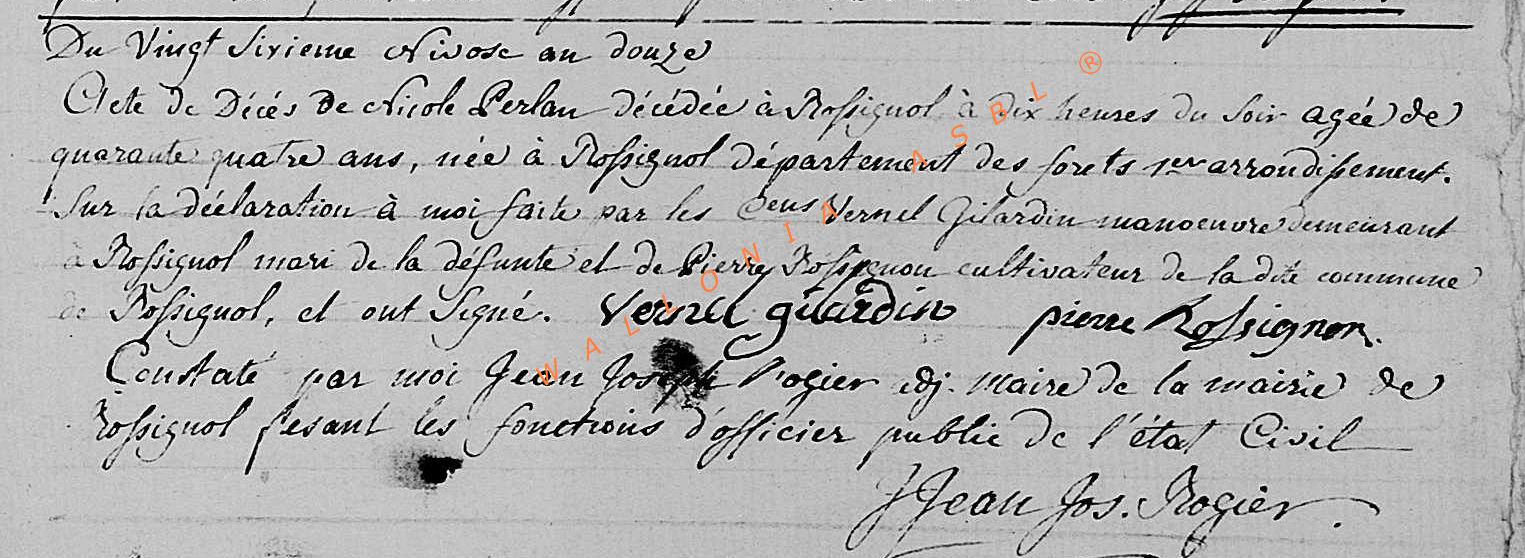 Du Vingt Sixieme Nivose an douze
Acte de Décés de Nicole Perlau décédée à Rossignol à dix heures du Soir agée de
quarante quatre ans, née à Rossignol département des forets 1er arrondissement.
Sur la déclaration à moi faite par les Cens Vernel Gilardin manoeuvre demeurant
à Rossignol mari de la défunte et de Pierre Rossignon cultivateur de la dite commune
de Rossignol, et ont Signé. Vernel gilardin pierre Rossignon.
Constaté par moi Jean Joseph Rogier adj. maire de la mairie de
Rossignol fesant les fonctions d'officier public de l'état Civil
Jean Jos. Rogier.
WALLONIA ASBL ®